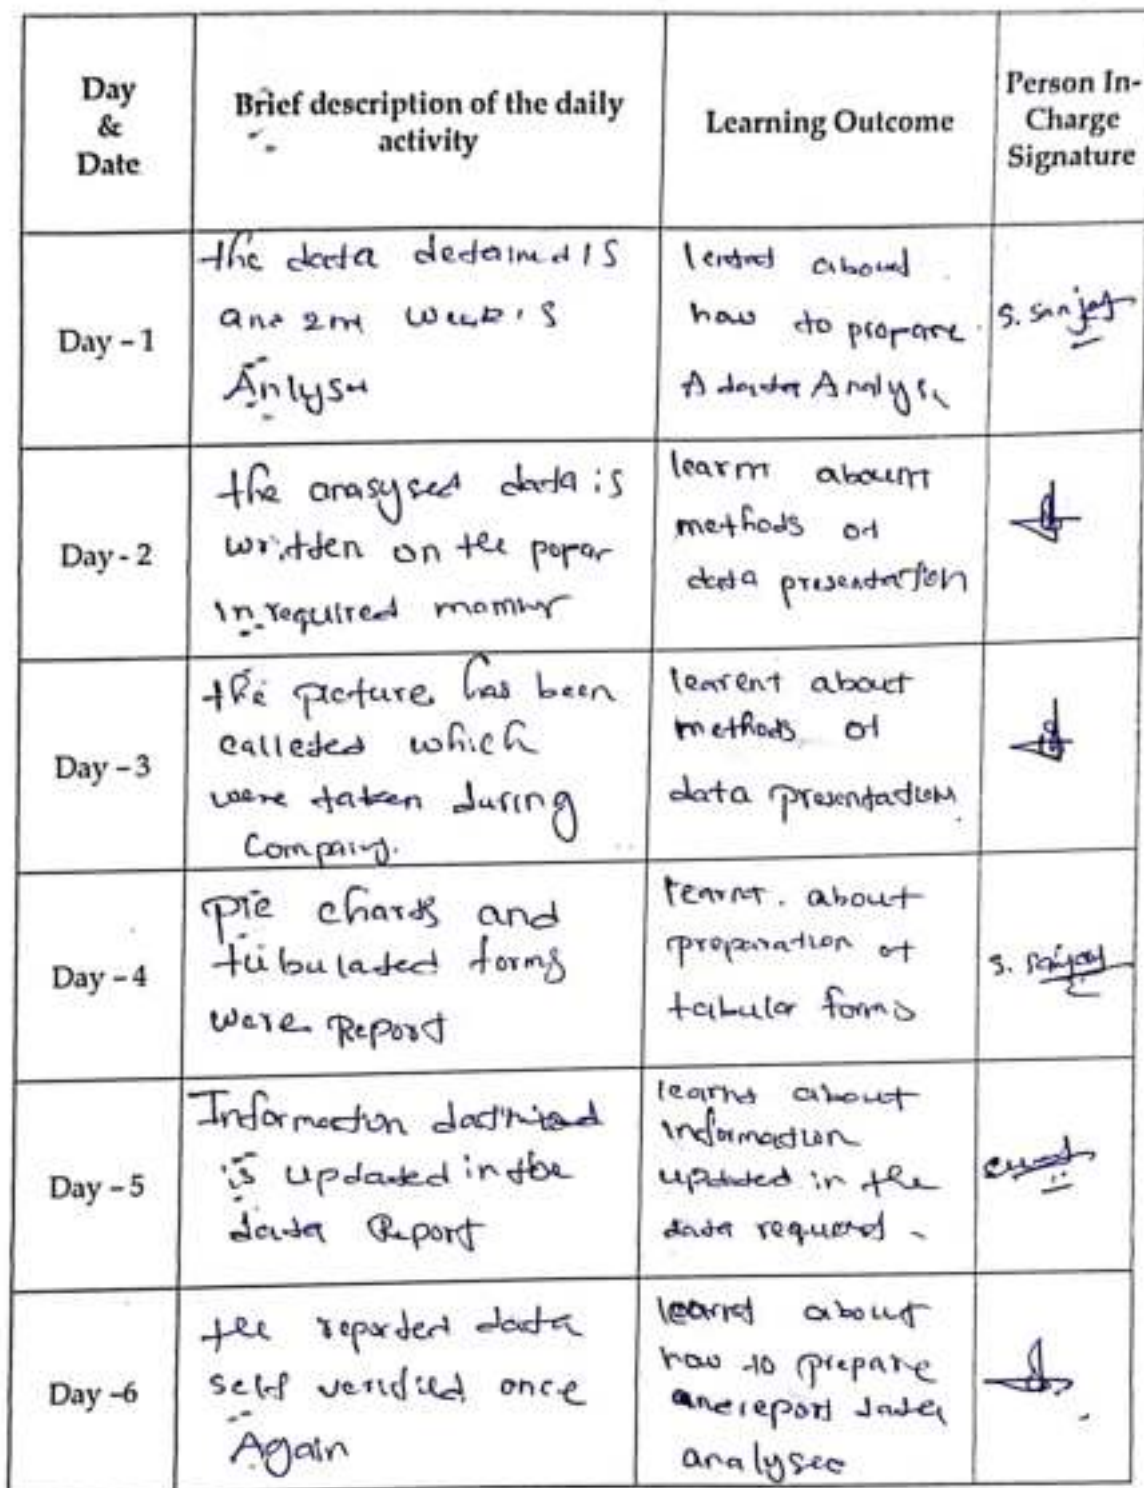 Day
&
Date
Brief description of the daily
activity
Learning Outcome
Person In-
Charge
Signature
Day - 1
the data
Anlyse
about
how to prepare
A data Analys
S. Sanjay
Day - 2
the anasysed data is
written on the popar
in required
learnt about
methods of
data presentation
Day - 3
the picture has been
calleted which
were taken during
learent about
methods of
data presentation
Day - 4
pie charts and
tubulated forms
were Report
learnt about
preparation of
tabular forms
S. Sanjay
Day - 5
Information
is updated in the
data Report
learnt about
information
updated in the
data
Day -6
the reported data
self verified once
Again
learnt about
how to prepare
report data